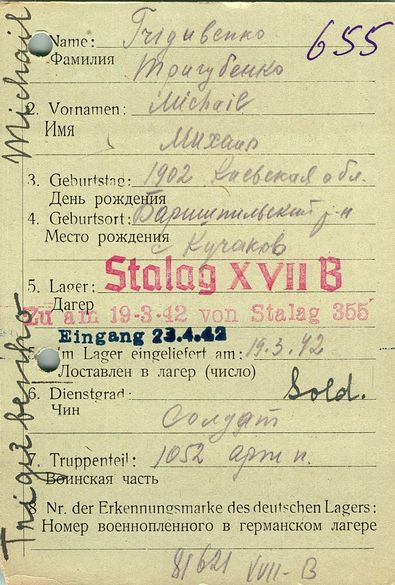 655
1. Name: Trigubenko
Фамилия Тригубенко
2. Vornamen: Michail
Имя Михаил
3. Geburtstag: 1902 Киевская обл.
День рождения
4. Geburtsort: Баришпильский р-н
Место рождения с Кучаков
5. Lager: Stalag XVII B
Лагер
Zu am 19-3-42 von Stalag 355
Eingang 23.4.42
Im Lager eingeliefert am: 19.3.42
Доставлен в лагер (число)
6. Dienstgrad: Sold.
Чин Солдат
7. Truppenteil: 1052 арт п.
Воинская часть
Nr. der Erkennungsmarke des deutschen Lagers:
Номер военнопленного в германском лагере
81621 XVII-B
Michail